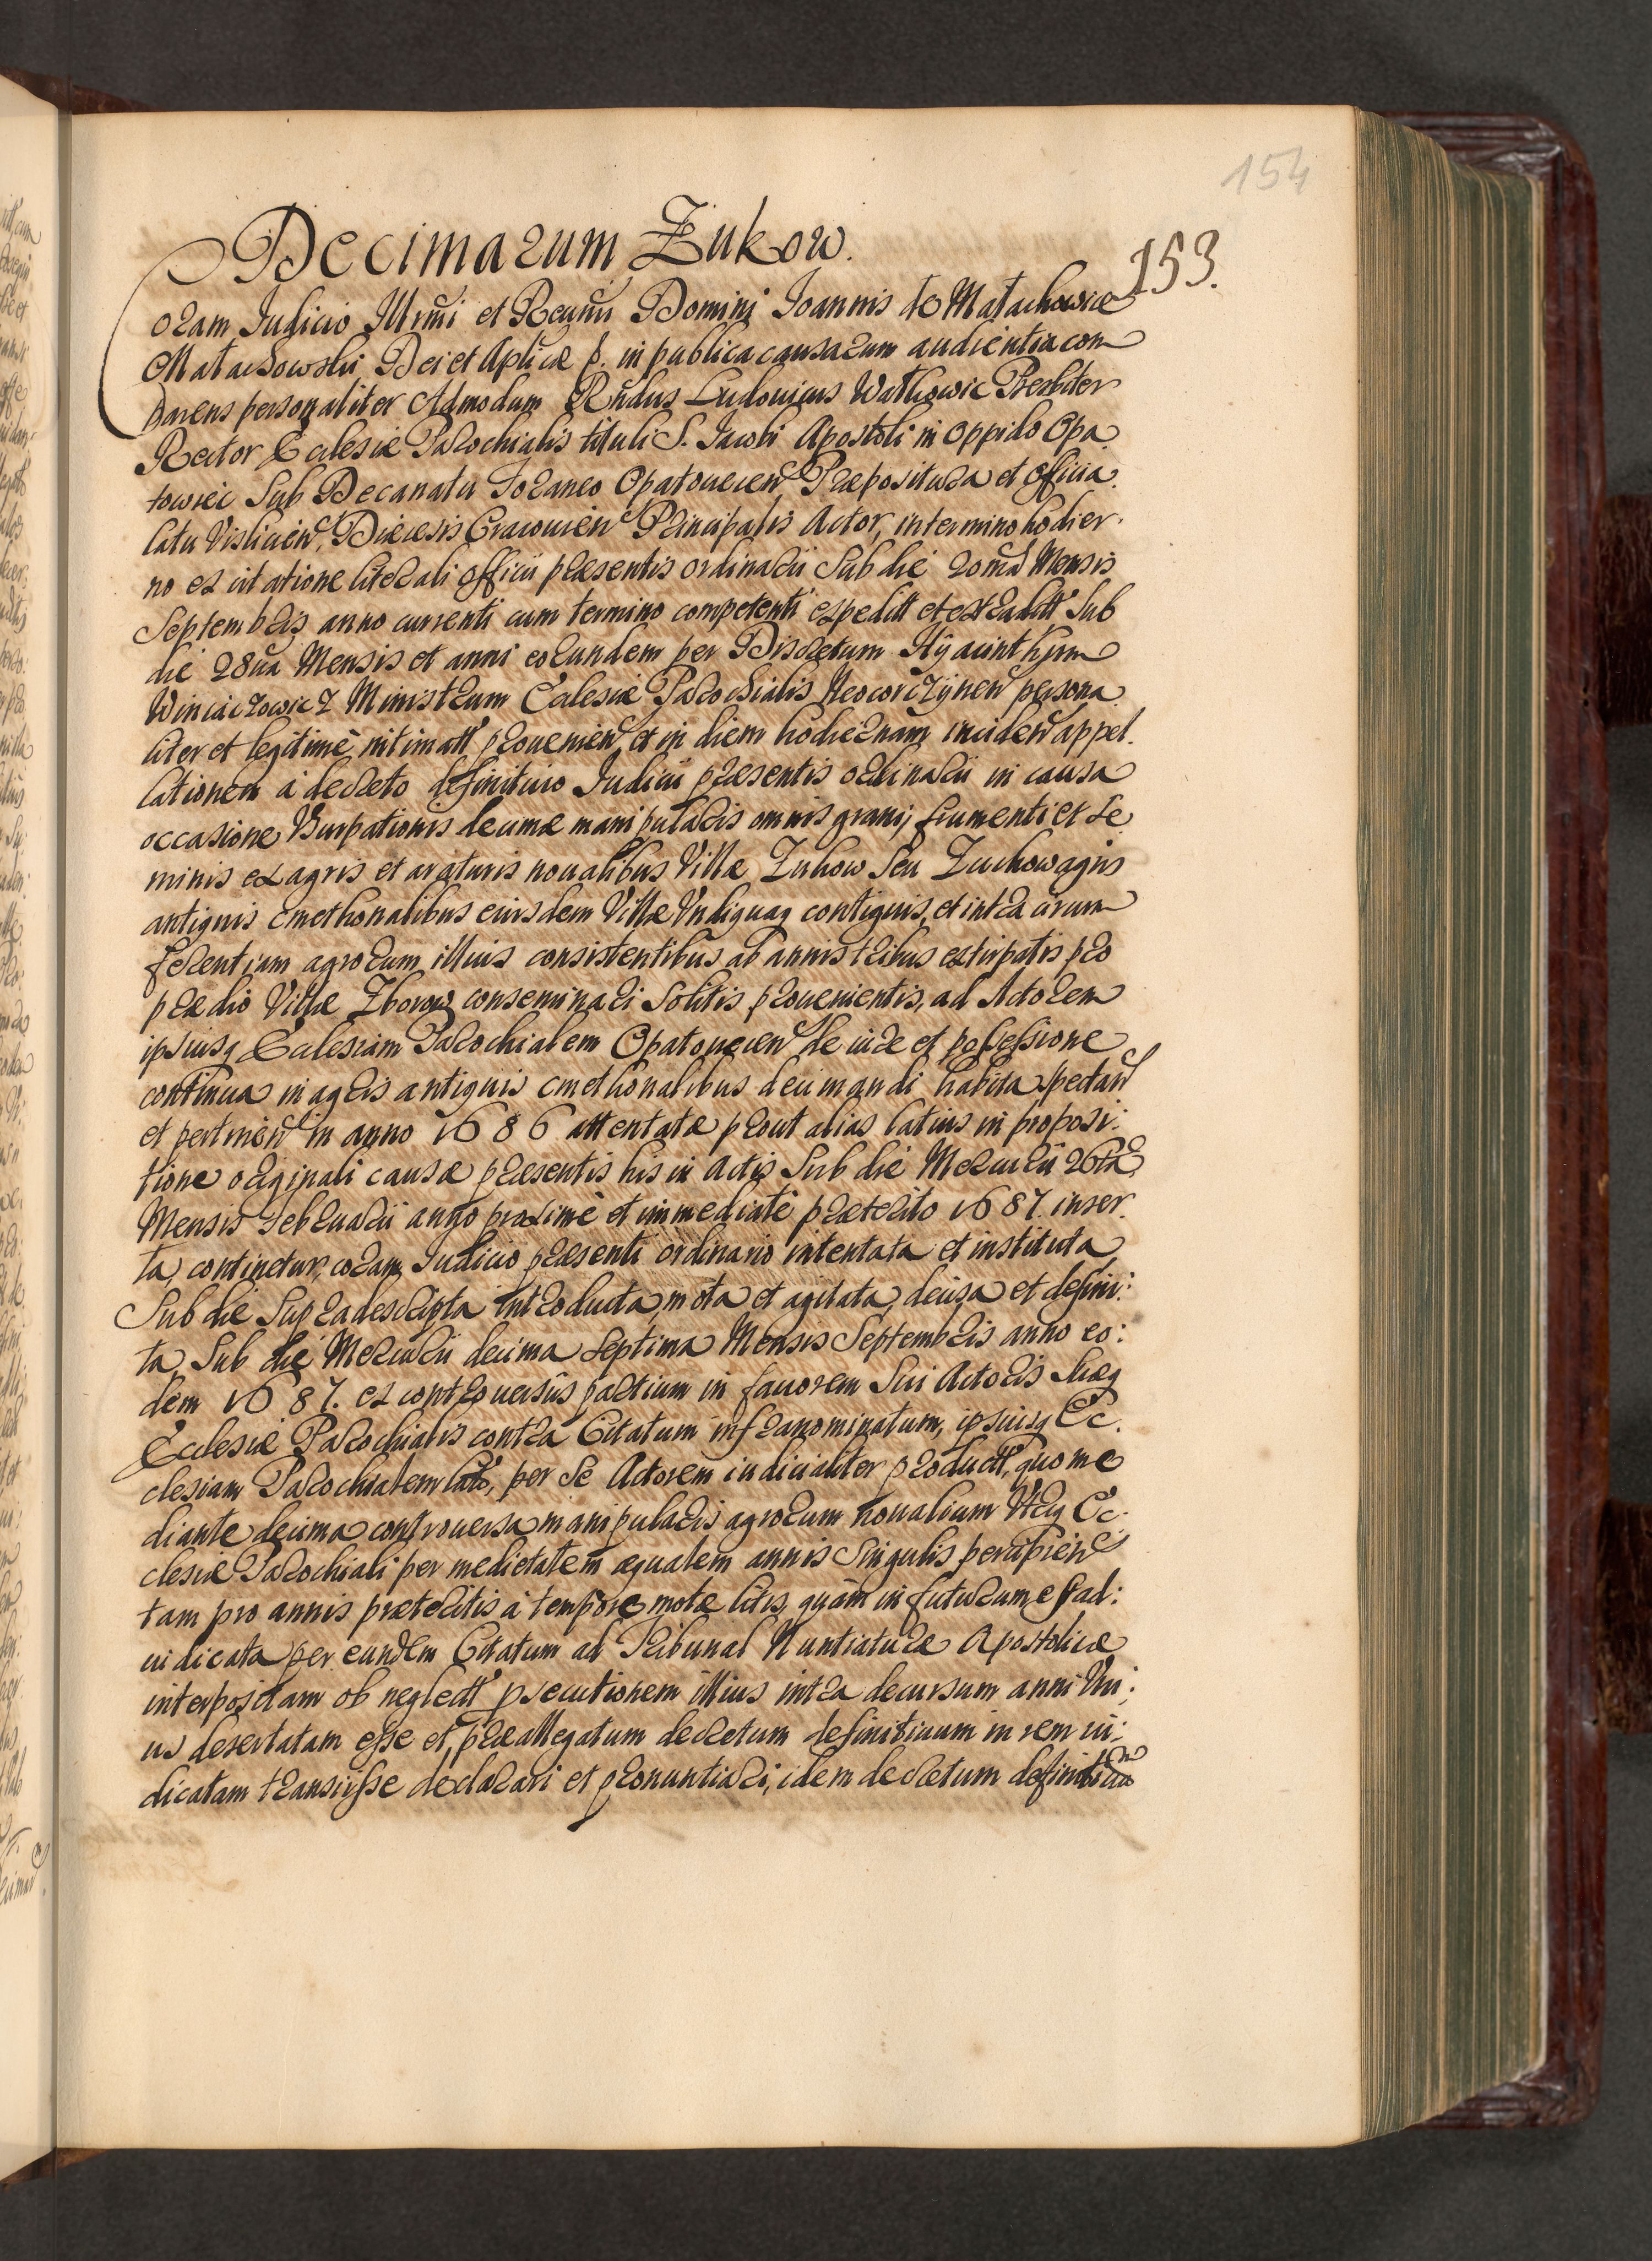 154
Decimarum Żukow.
153.
Coram Judicio Illrmi et Reumi Domini Joannis de Małachowice
Małachowski Dei et Aplicæ p. in publica causarum audientia com
parens personaliter Admodum Rndus Ludouicus Watkowic Presbiter
Rector Ecclesiæ Parochialis tituli S. Jacobi Apostoli in oppido Opa
towiec Sub Decanatu foraneo Opatouecen Præpositura et officia
latu Vislicien, Diæcesis Cracouien Principalis Actor, in termino hodier
no ex citatione literali officii præsentis ordinarii Sub die 20ma Mensis
Septembris anno currenti cum termino competenti expeditt et extraditt Sub
die 28ua Mensis et anni eorundem per Discretum Hyacinthum
Winiarzowicz Ministrum Ecclesiæ Parochialis Neocorczynen persona
liter et legitimè intimatt prouenien, et in diem hodiernam inciden appel
lationem à decreto definitiuo Judicii præsentis ordinarii in causa
occasione Vsurpationis decimæ manipularis omnis grani, frumenti et se
minis ex agris et araturis noualibus Villæ Zukow Seu Zuchow agris
antiquis cmethonalibus eiusdem Villæ Vndiquaq contiguis, et intra circum
ferentiam agrorum illius consistentibus ab annis tribus extirpatis pro
prædio Villæ Zborow conseminari Solitis prouenientis, ad Actorem
ipsiusq Ecclesiam Parochialem Opatouecen de iure et possessione
continua in agris antiquis cmethonalibus decimandi habita spectan
et pertinen in anno 1686 attentatæ prout alias latius in proposi:
tione originali causæ præsentis his in Actis Sub die Mercurii 26ta
Mensis Februarii anno proximè et immediatè præterito 1687. inser
ta, continetur, coram Judicio præsenti ordinario intentata et instituta
Sub die Supradescripta introducta, mota et agitata, decisa et defini:
ta Sub die Mercurii decima Septima Mensis Septembris anno eo:
dem 1687. ex controuersiis partium in fauorem Sui Actoris Suæq
Ecclesiæ Parochialis contra Citatum infranominatum, ipsiusq Ec
clesiam Parochialem lato, per Se Actorem iudicialiter productt, quo me
diante decima controuersa manipularis agrorum noualium Vtriq Ec
clesiæ Parochiali per medietatem æqualem annis Singulis percipien
tam pro annis præteritis à tempore motæ litis, quàm in futurum e[st] ad:
iudicata per eundem Citatum ad Tribunal Nuntiaturæ Apostolicæ
interpositam ob neglectt psecutionem illius intra decursum anni Vni:
us desertatam esse et præallegatum decretum definitiuum in rem iu:
dicatam transiisse declarari et pronuntiari, idem decretum definitiuu